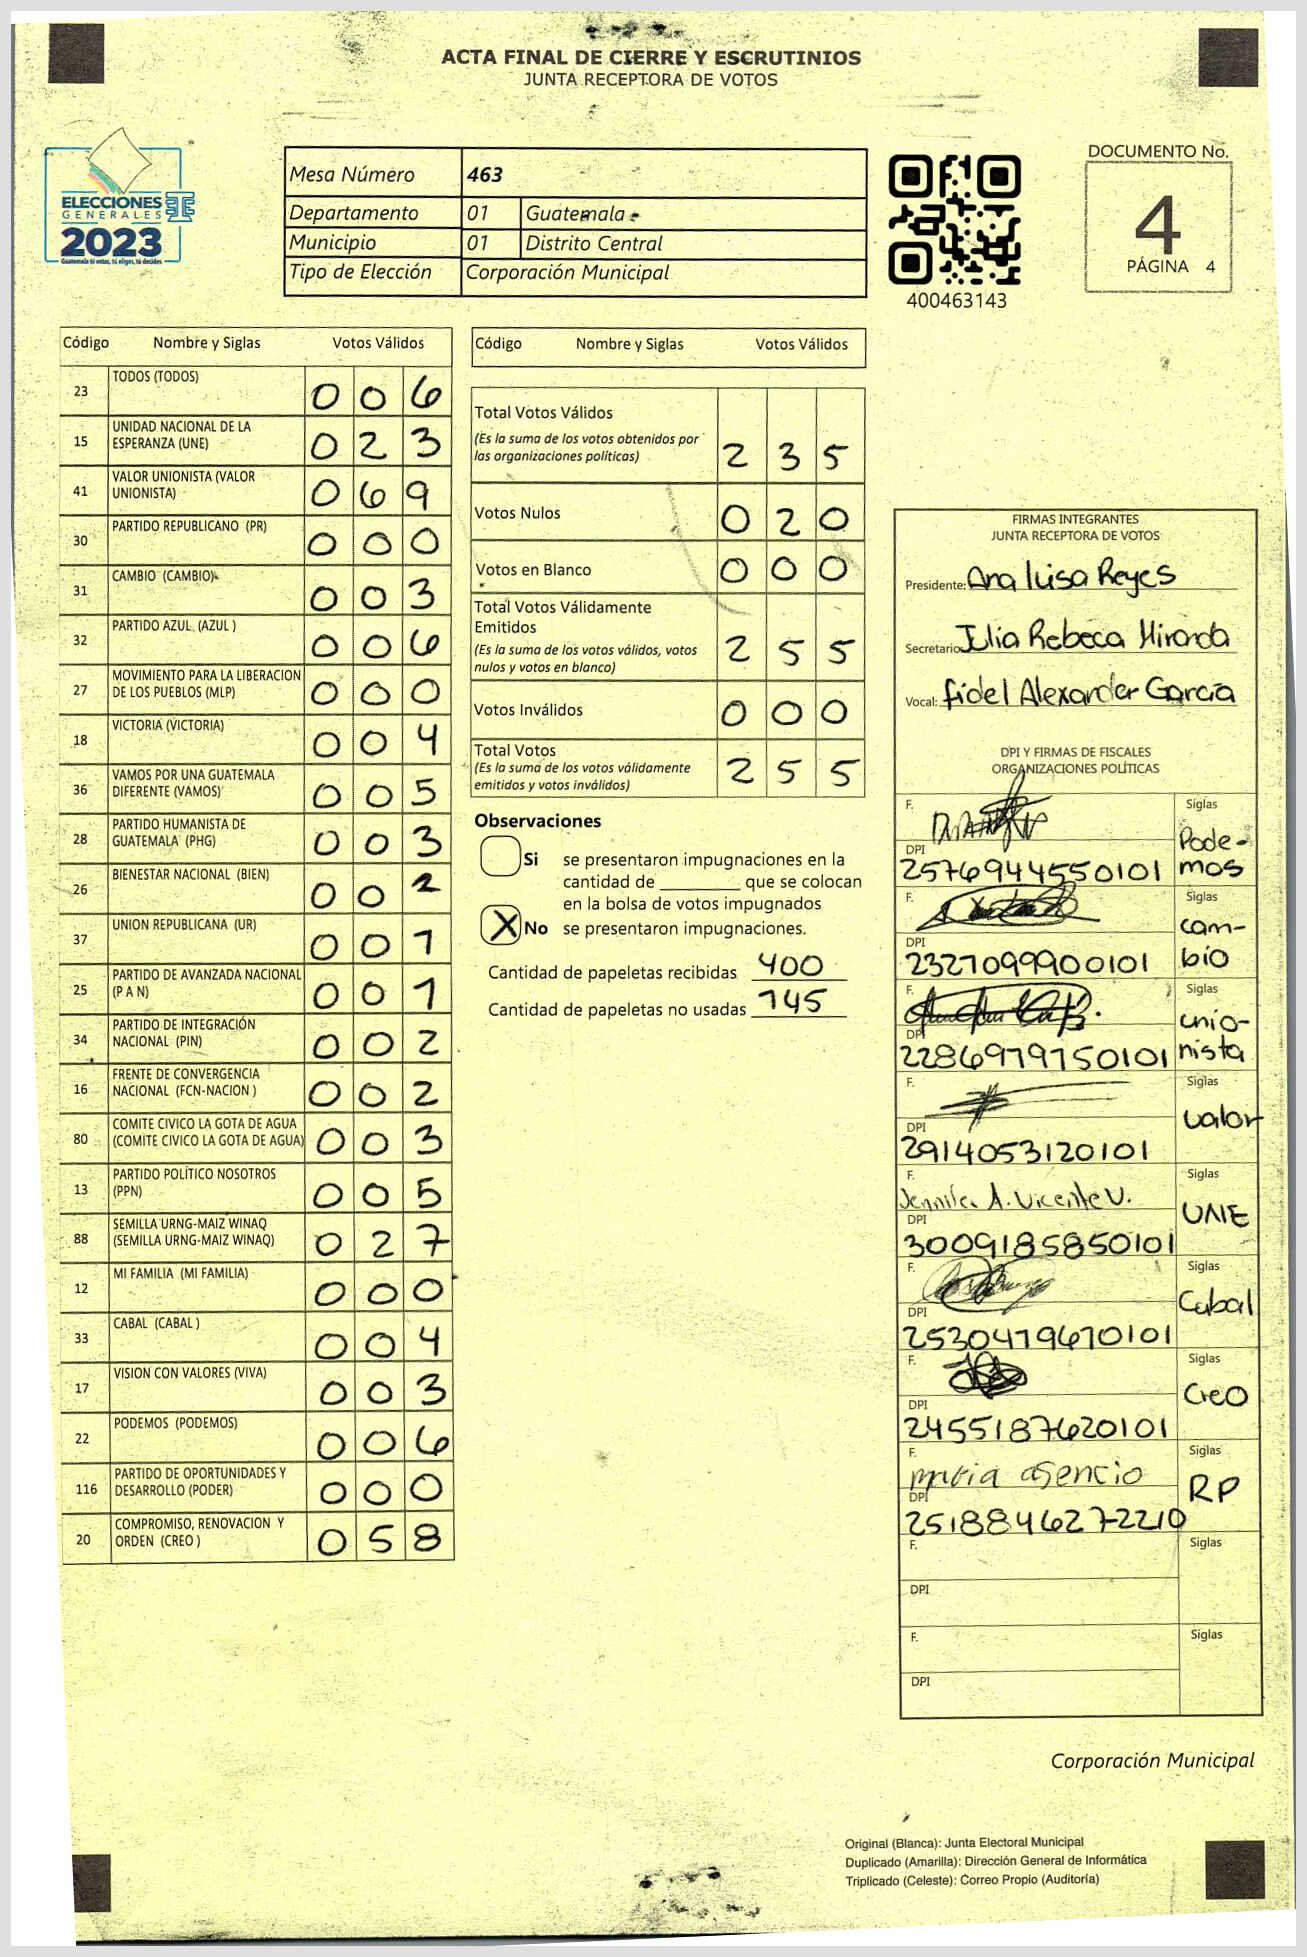 ACTA FINAL DE CIERRE Y ESCRUTINIOS
JUNTA RECEPTORA DE VOTOS
ELECCIONES
GENERALES
2023
Guatemala tú votas, tú eliges, tú decides
Mesa Número 463
Departamento 01 Guatemala
Municipio 01 Distrito Central
Tipo de Elección Corporación Municipal
400463143
DOCUMENTO No.
4
PÁGINA 4
Código Nombre y Siglas Votos Válidos
23 TODOS (TODOS) 0 0 6
15 UNIDAD NACIONAL DE LA
ESPERANZA (UNE) 0 2 3
41 VALOR UNIONISTA (VALOR
UNIONISTA) 0 6 9
30 PARTIDO REPUBLICANO (PR) 0 0 0
31 CAMBIO (CAMBIO) 0 0 3
32 PARTIDO AZUL (AZUL ) 0 0 6
27 MOVIMIENTO PARA LA LIBERACION
DE LOS PUEBLOS (MLP) 0 0 0
18 VICTORIA (VICTORIA) 0 0 4
36 VAMOS POR UNA GUATEMALA
DIFERENTE (VAMOS) 0 0 5
28 PARTIDO HUMANISTA DE
GUATEMALA (PHG) 0 0 3
26 BIENESTAR NACIONAL (BIEN) 0 0 2
37 UNION REPUBLICANA (UR) 0 0 1
25 PARTIDO DE AVANZADA NACIONAL
(P A N) 0 0 1
34 PARTIDO DE INTEGRACIÓN
NACIONAL (PIN) 0 0 2
16 FRENTE DE CONVERGENCIA
NACIONAL (FCN-NACION ) 0 0 2
80 COMITE CIVICO LA GOTA DE AGUA
(COMITE CIVICO LA GOTA DE AGUA) 0 0 3
13 PARTIDO POLÍTICO NOSOTROS
(PPN) 0 0 5
88 SEMILLA URNG-MAIZ WINAQ
(SEMILLA URNG-MAIZ WINAQ) 0 2 7
12 MI FAMILIA (MI FAMILIA) 0 0 0
33 CABAL (CABAL ) 0 0 4
17 VISION CON VALORES (VIVA) 0 0 3
22 PODEMOS (PODEMOS) 0 0 6
116 PARTIDO DE OPORTUNIDADES Y
DESARROLLO (PODER) 0 0 0
20 COMPROMISO, RENOVACION Y
ORDEN (CREO ) 0 5 8
Código Nombre y Siglas Votos Válidos
Total Votos Válidos
(Es la suma de los votos obtenidos por
las organizaciones políticas) 2 3 5
Votos Nulos 0 2 0
Votos en Blanco 0 0 0
Total Votos Válidamente
Emitidos
(Es la suma de los votos válidos, votos
nulos y votos en blanco) 2 5 5
Votos Inválidos 0 0 0
Total Votos
(Es la suma de los votos válidamente
emitidos y votos inválidos) 2 5 5
Observaciones
Si se presentaron impugnaciones en la
cantidad de ________ que se colocan
en la bolsa de votos impugnados
X No se presentaron impugnaciones.
Cantidad de papeletas recibidas 400
Cantidad de papeletas no usadas 145
FIRMAS INTEGRANTES
JUNTA RECEPTORA DE VOTOS
Presidente: Ana luisa Reyes
Secretario: Julia Rebeca Miranda
Vocal: fidel Alexander García
DPI Y FIRMAS DE FISCALES
ORGANIZACIONES POLÍTICAS
F. Siglas
Pode-
DPI
2576944550101 mos
F. Siglas
cam-
DPI
2327099900101 bio
F. Siglas
unio-
DPI
2286979750101 nista
F. Siglas
valor
DPI
2914053120101
F. Siglas
Jennifer A. Vicente V.
UNE
DPI
3009185850101
F. Siglas
Cabal
DPI
2530479670101
F. Siglas
Creo
DPI
2455187620101
F. Siglas
maria asencio
RP
DPI
2518846272210
F. Siglas
DPI
F. Siglas
DPI
Corporación Municipal
Original (Blanca): Junta Electoral Municipal
Duplicado (Amarilla): Dirección General de Informática
Triplicado (Celeste): Correo Propio (Auditoría)